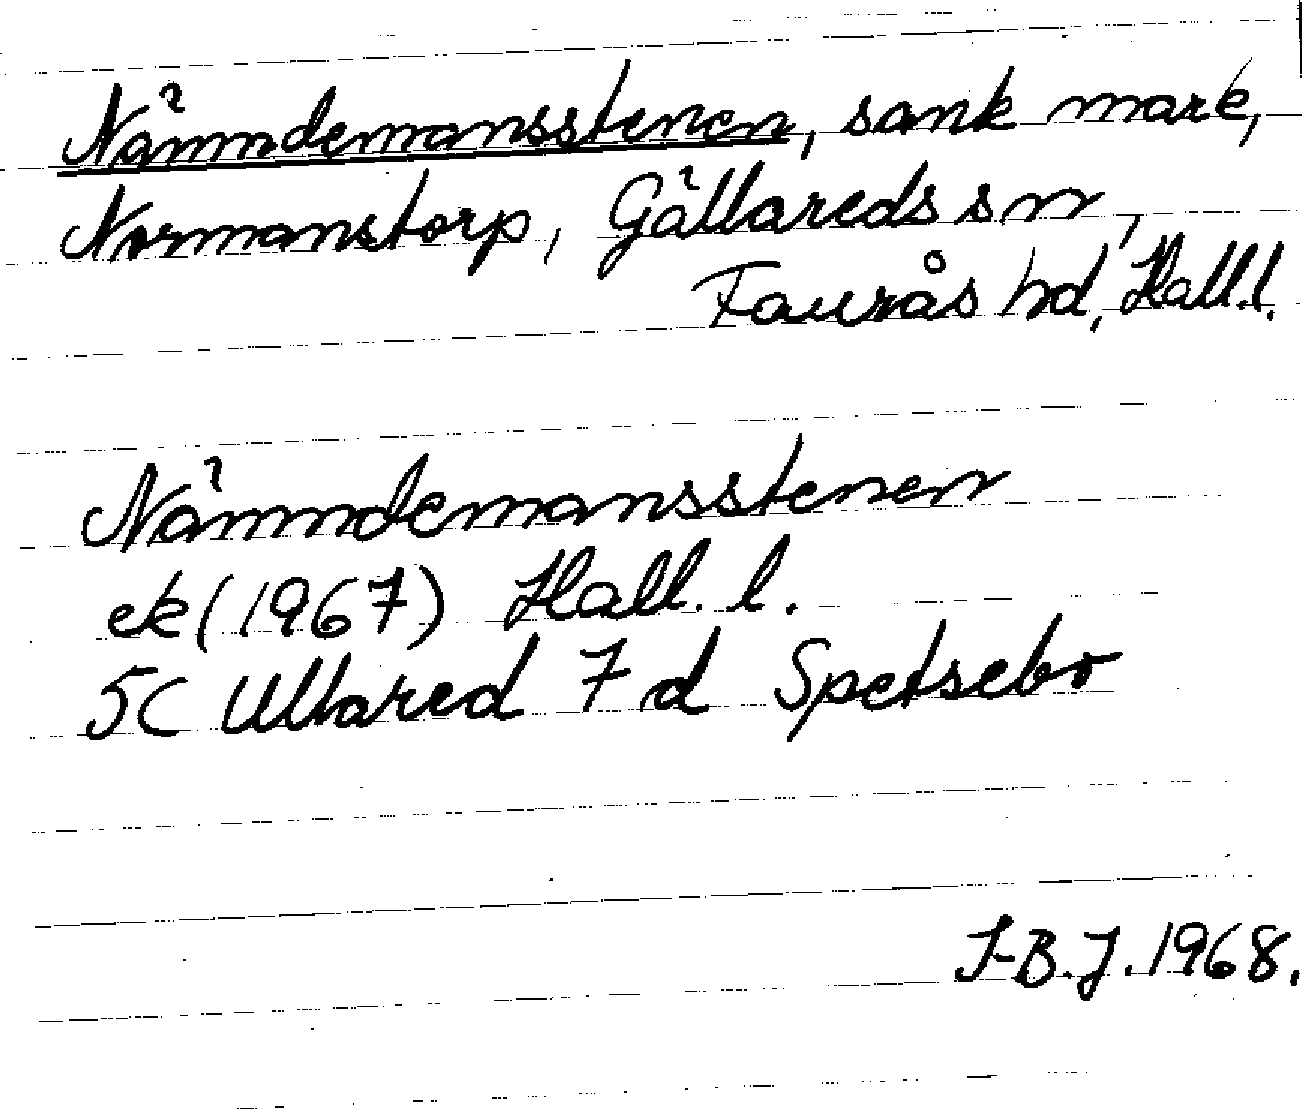 Nämndemansstenen, sank mark,
Normanstorp, Gällareds sn,
Faurås hd, Hall.l.
Nämndemansstenen
ek (1967) Hall. l.
5C Ullared 7 d Spetsebo
I-B.J. 1968.